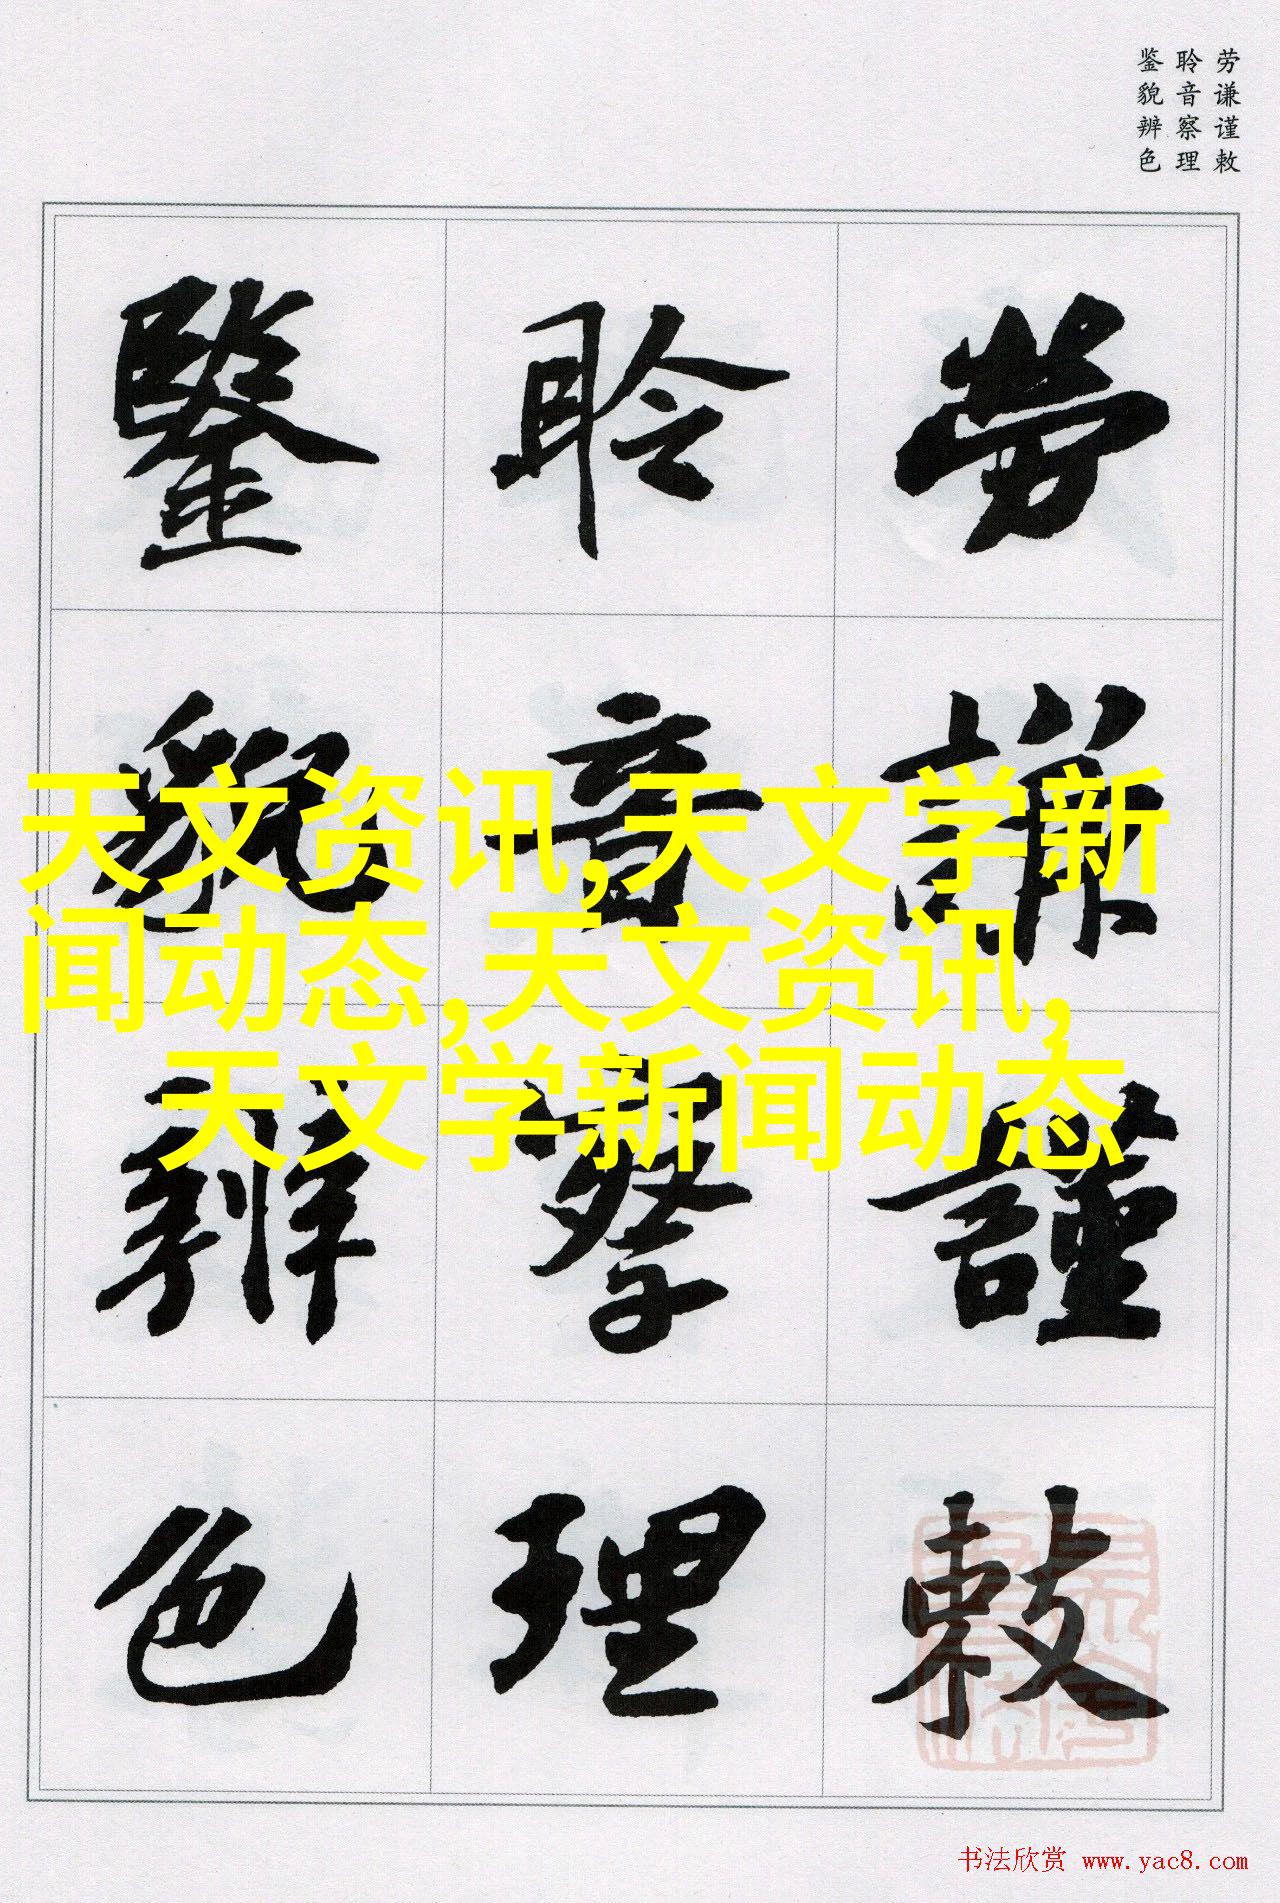 劳谦谨敕
聆音察理
鉴貌辨色
勞謙謹敕
聆音察理
鑒貌辨色
天文资讯,天文学新
闻动态,天文资讯,
天文学新闻动态
书法欣赏 www.yac8.com